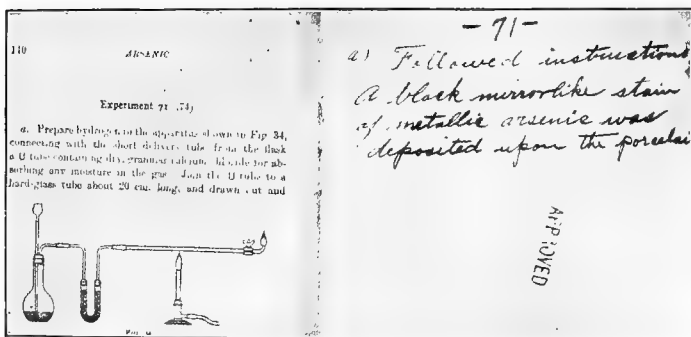 140
ARSENIC
Experiment 71
a. Prepare hydrogen in the apparatus shown in Fig. 34,
connecting with the short delivery tube from the flask
a U tube containing dry, granular calcium for ab-
sorbing any moisture in the gas. Join the U tube to a
hard-glass tube about 20 cm. long, and drawn out and
- 71 -
a) Followed instructions
A black mirrorlike stain
of metallic arsenic was
deposited upon the porcelai
APPROVED